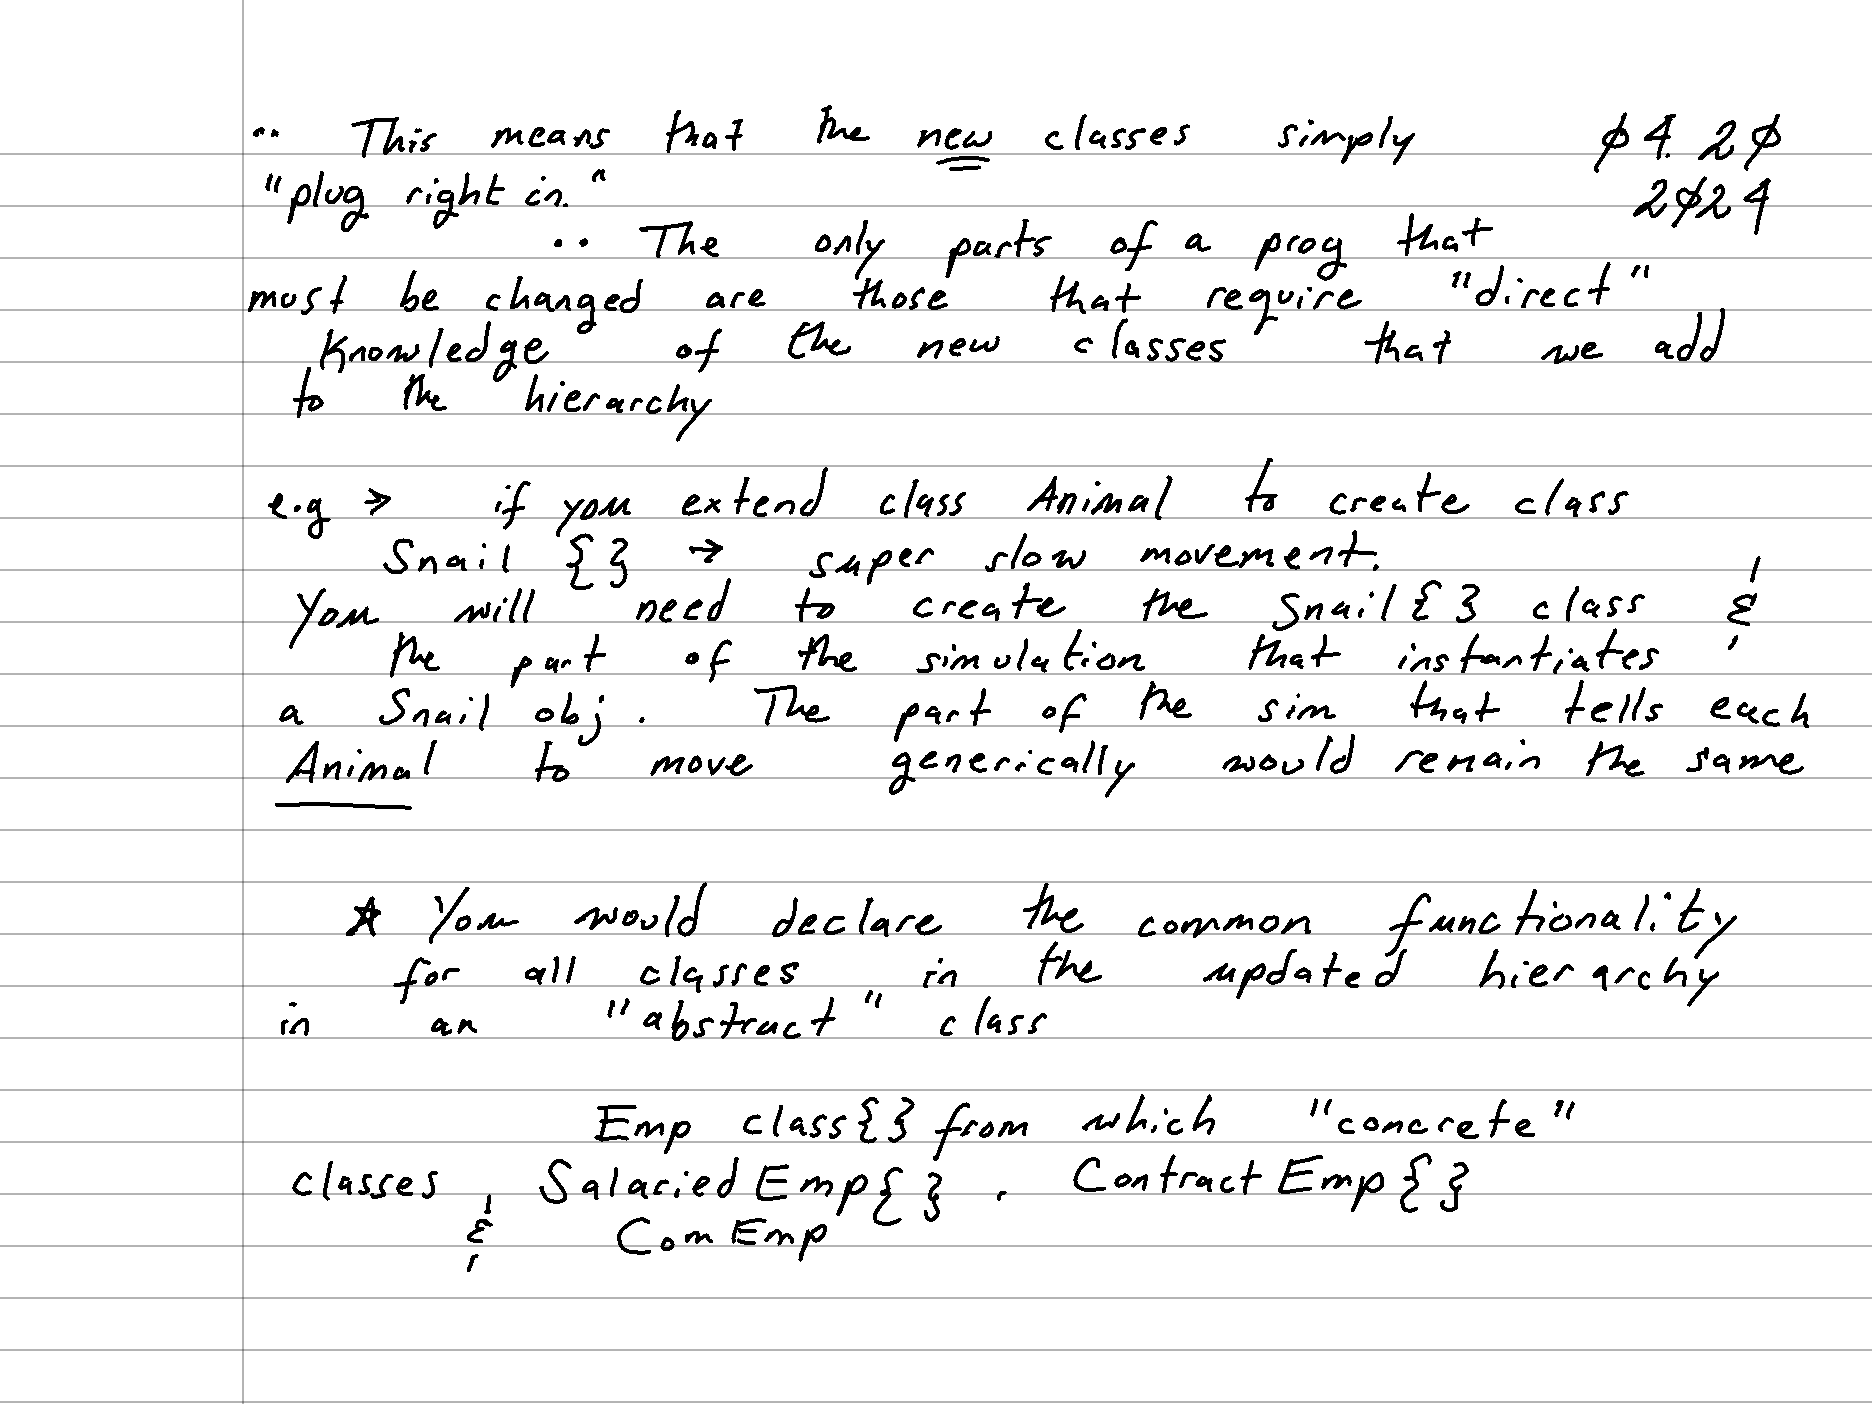 .. This means that the new classes simply 04. 20
"plug right in." 2024
.. The only parts of a prog that
must be changed are those that require "direct"
Knowledge of the new classes that we add
to the hierarchy
e.g → if you extend class Animal to create class
Snail {} → super slow movement.
You will need to create the Snail{} class &
the part of the simulation that instantiates
a Snail obj. The part of the sim that tells each
Animal to move generically would remain the same
☆ You would declare the common functionality
for all classes in the updated hierarchy
in an "abstract" class
Emp class{} from which "concrete"
classes, SalariedEmp{}. ContractEmp{}
& ComEmp